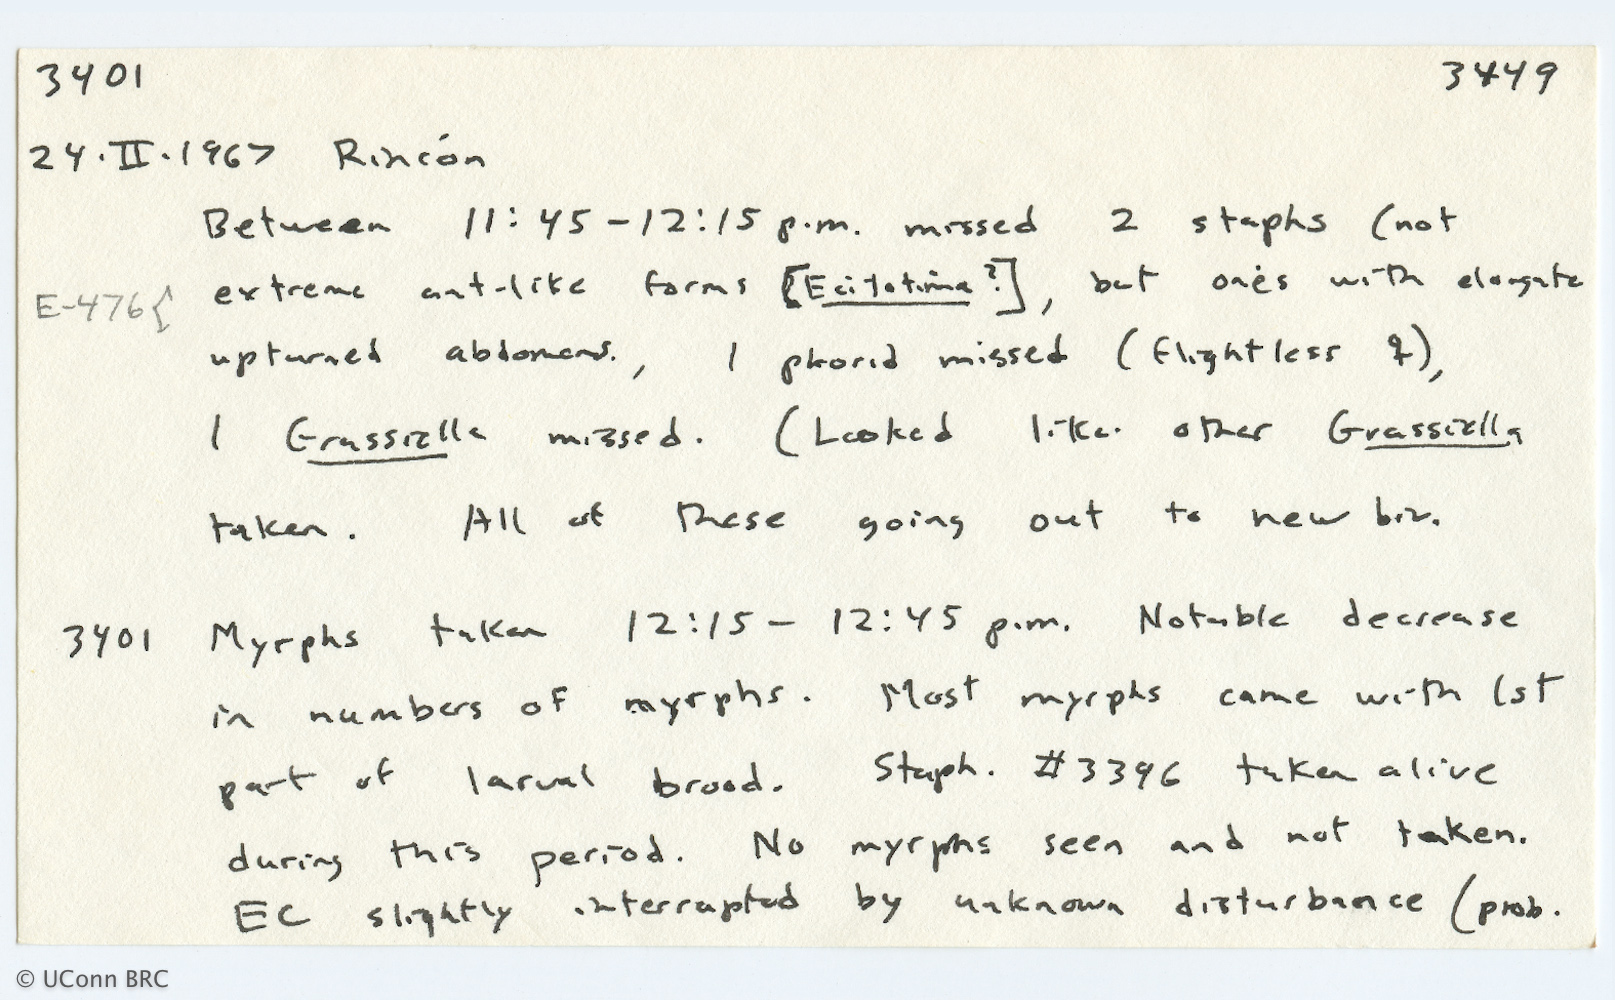 3401 3449
24.II.1967 Rincón
Between 11:45-12:15 p.m. missed 2 staphs (not
E-476{ extreme ant-like forms [Ecitotima?], but ones with elongate
upturned abdomens., 1 phorid missed (flightless ♀),
1 Grassiella missed. (Looked like other Grassiella
taken. All of these going out to new biv.
3401 Myrphs taken 12:15- 12:45 p.m. Notable decrease
in numbers of myrphs. Most myrphs came with 1st
part of larval brood. Staph. #3396 taken alive
during this period. No myrphs seen and not taken.
EC slightly interrupted by unknown disturbance (prob.
© UConn BRC